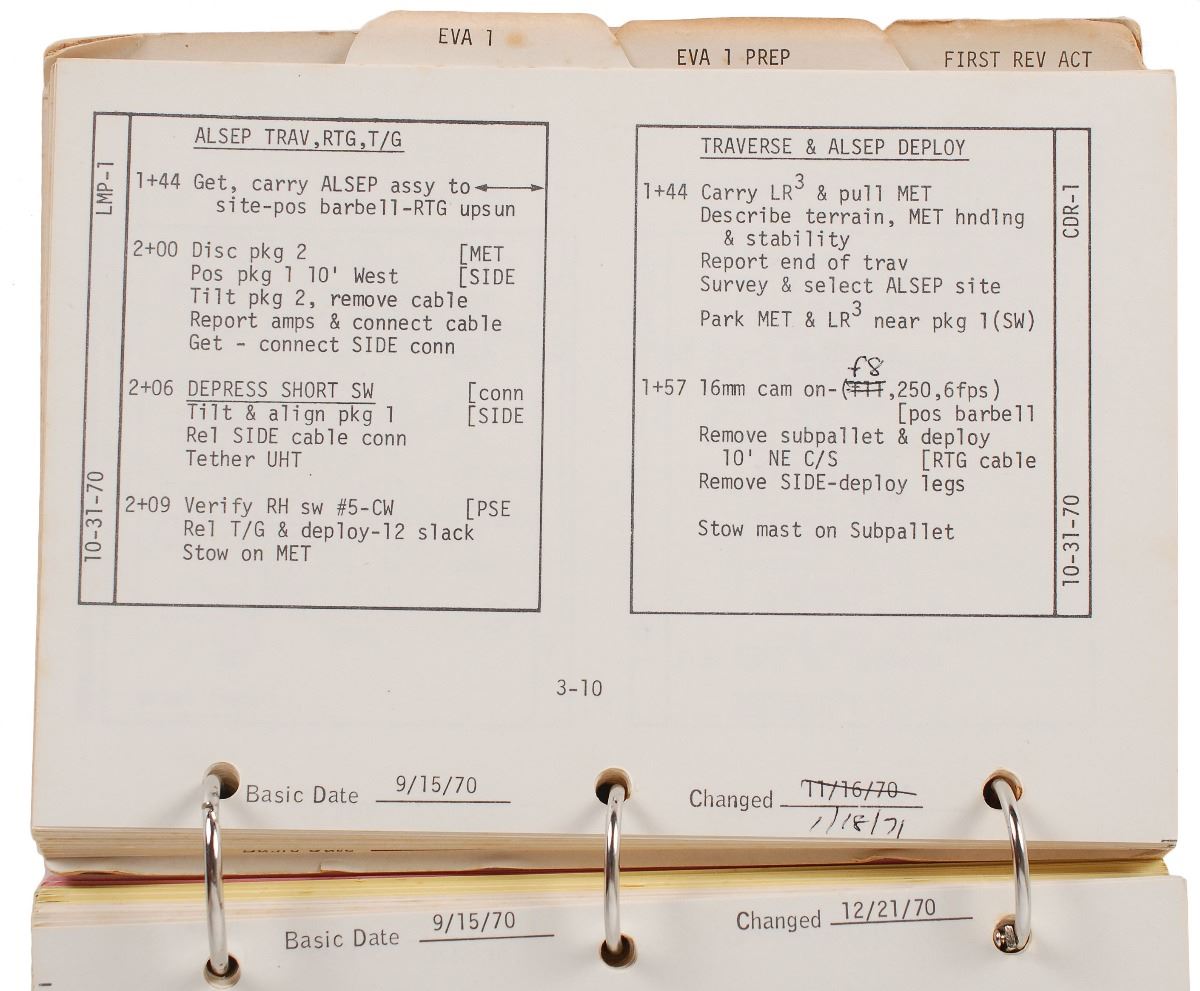 EVA 1
EVA 1 PREP
FIRST REV ACT
LMP-1
10-31-70
ALSEP TRAV,RTG,T/G
1+44 Get, carry ALSEP assy to↔
site-pos barbell-RTG upsun
2+00 Disc pkg 2 [MET
Pos pkg 1 10' West [SIDE
Tilt pkg 2, remove cable
Report amps & connect cable
Get - connect SIDE conn
2+06 DEPRESS SHORT SW [conn
Tilt & align pkg 1 [SIDE
Rel SIDE cable conn
Tether UHT
2+09 Verify RH sw #5-CW [PSE
Rel T/G & deploy-12 slack
Stow on MET
TRAVERSE & ALSEP DEPLOY
1+44 Carry LR³ & pull MET
Describe terrain, MET hndlng
& stability
Report end of trav
Survey & select ALSEP site
Park MET & LR³ near pkg 1(SW)
f8
1+57 16mm cam on-(f11,250,6fps)
[pos barbell
Remove subpallet & deploy
10' NE C/S [RTG cable
Remove SIDE-deploy legs
Stow mast on Subpallet
CDR-1
10-31-70
3-10
Basic Date 9/15/70
Changed 11/16/70
1/18/71
Basic Date 9/15/70
Changed 12/21/70